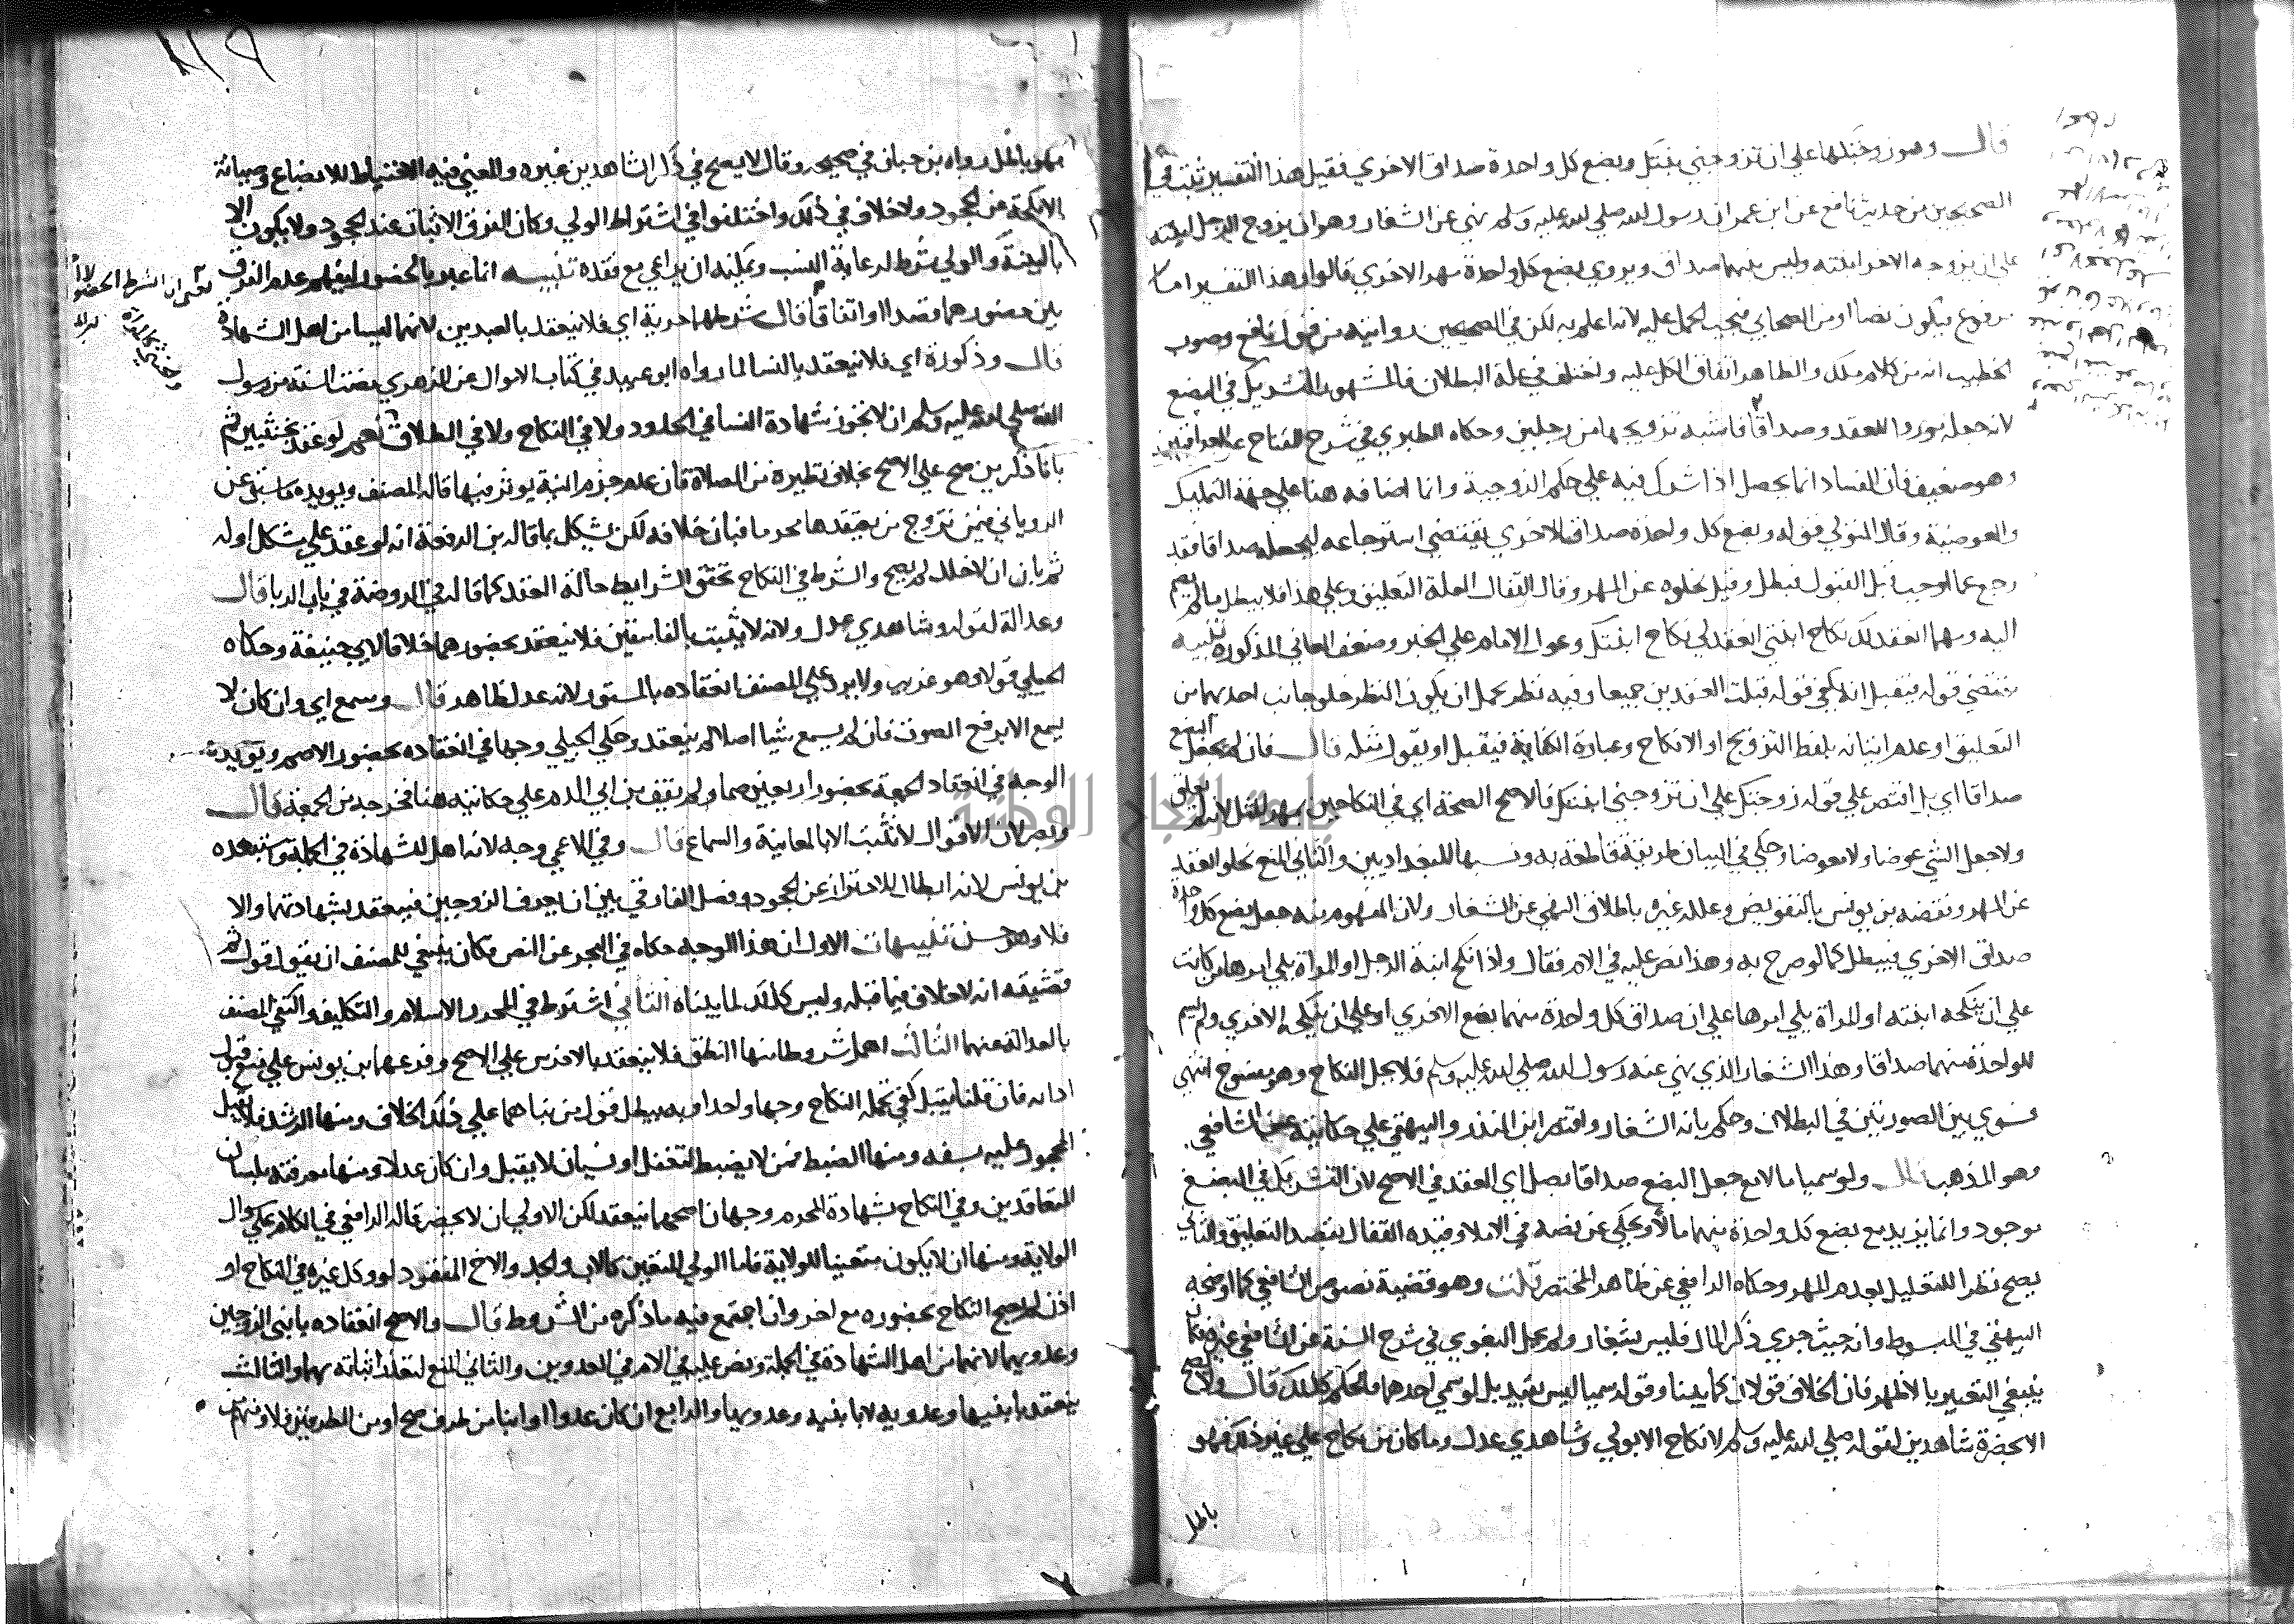 قال وهو زوجتكها على ان تزوجني بنتك وبضع كل واحدة صداق الاخري فيقبل هذا التفسير ثبت في
الصحيحين من حديث نافع عن ابن عمر ان رسول الله صلي الله عليه وسلم نهي عن الشغار وهو ان يزوج الرجل ابنته
علي ان يزوجه الاخر ابنته وليس بينهما صداق ويروي بضع كل واحدة مهر الاخري قالوا وهذا التفسير اما
مرفوع فيكون نصا او من الصحابي فيجب الحمل عليه لانه اعلم به لكن في الصحيحين روايته من قول نافع وصوب
الخطيب انه من كلام ملك والظاهر اتفاق الكل عليه واختلف في علة البطلان فالمشهور التشريك في البضع
لانه جعله موردا للعقد وصداقا فاشبه تزويجها من رجلين وحكاه الطبري في شرح المفتاح عن العراقيين
وهو ضعيف فان الفساد انما يحصل اذا شرك فيه علي حكم الزوجية وانما اضافه هنا علي جهة التمليك
والعوضية وقال المتولي قوله وبضع كل واحدة صداق الاخري يقتضي استرجاعه ليجعله صداقا فقد
رجع عما اوجب قبل القبول فبطل وقيل لخلوه عن المهر وقال القفال العلة التعليق وعلي هذا فلا يبطل ما لم يضم
اليه ومهما انعقد لك نكاح ابنتي انعقد لي نكاح ابنتك وعول الامام علي الخبر وضعف المعاني المذكورة تنبيه
يقتضي قوله فيقبل انه يكفي قوله قبلت العقدين جميعا وفيه نظر يحمل ان يكون النظر خلو جانب احدهما من
التعليق او عدم اتيانه بلفظ التزويج او الانكاح وعبارة الكفاية فيقبل او يقول مثله قال فان لم يجعل البضع
صداقا اي بل اقتصر علي قوله زوجتك علي ان تزوجني ابنتك فالاصح الصحة اي في النكاحين بمهر المثل لانه لم تعلق
ولا جعل الشي عوضا ولا معوضا وحكي في البيان طريقة قاطعة به ونسبها للبغداديين والثاني المنع لخلو العقد
عن المهر ونقضه بن يونس بالتفويض وعلله غيره باطلاق النهي عن الشغار ولان المفهوم منه جعل بضع كل واحدة
صداق الاخري فيبطل كما لو صرح به وهذا نص عليه في الام فقال واذا نكح ابنة الرجل او المراة يلي امرها من كانت
علي ان ينكحه ابنته او المراة يلي امرها علي ان صداق كل واحدة منهما بضع الاخري او علي ان ينكحه الاخري ولم يسم
للواحدة منهما صداقا فهذا الشغار الذي نهي عنه رسول الله صلي الله عليه وسلم فلا يحل النكاح وهو مفسوخ انتهي
فسوي بين الصورتين في البطلان وحكم بانه الشغار واقتصر ابن المنذر والبيهقي علي حكايته عن الشافعي
وهو المذهب قال ولو سميا مالا مع جعل البضع صداقا بطل اي العقد في الاصح لان التشريك في البضع
موجود وانما يزيد مع بضع كل واحدة منهما مالا ويحكي عن نصه في الاملا وقيده القفال بقصد التعليق والثاني
يصح نظرا للتعليل بعدم المهر وحكاه الرافعي عن ظاهر المختصر قلت وهو قضية نصوص الشافعي كما اوضحه
البيهقي في المبسوط وانه حيث جري ذكر المال فليس بشغار ولم يحك البغوي في شرح السنة عن الشافعي غيره فكان
ينبغي التعبير بالاظهر فان الخلاف قولان كما بينا وقوله سميا ليس بقيد بل لو سمي احدهما فالحكم كذلك قال ولا يصح
الا بحضرة شاهدين لقوله صلي الله عليه وسلم لا نكاح الا بولي وشاهدي عدل وما كان من نكاح علي غير ذلك فهو
باطل
فهو باطل رواه بن حبان في صحيحه وقال لا يصح في ذكر الشاهدين غيره والمعني فيه الاحتياط للابضاع وصيانة
الانكحة عن الجحود ولا خلاف في ذلك واختلفوا في اشتراط الولي وكان الفرق الاثبات عند الجحود ولا يكون الا
بالبينة والولي شرط لرعاية النسب ويمكنه ان يراعي مع فقده تنبيه انما عبر بالحضور ليفهم عدم الفرق
بين حضورهما قصدا او اتفاقا قال شرطهما حرية اي فلا ينعقد بالعبدين لانهما ليسا من اهل الشهادة
قال وذكورة اي فلا ينعقد بالنسا لما رواه ابو عبيد في كتاب الاموال عن الزهري مضت السنة من رسول
الله صلي الله عليه وسلم ان لا تجوز شهادة النسا في الحدود ولا في النكاح ولا في الطلاق نعم لو عقد بخنثيين ثم
بانا ذكرين صح علي الاصح بخلاف نظيره من الصلاة فان عدم جزم النية يوثر فيها قاله المصنف ويويده ما سبق عن
الروياني فيمن تزوج من يعتقدها محرما فبان خلافه لكن يشكل بما قاله بن الرفعة انه لو عقد علي مشكل او له
ثم بان ان لا خلل لم يصح والشرط في النكاح تحقق الشرايط حالة العقد كما قاله في الروضة في باب الربا قال
وعدالة لقوله وشاهدي عدل ولانه لا يثبت بالفاسقين فلا ينعقد بحضورهما خلافا لابي حنيفة وحكاه
الجيلي قولا وهو غريب ولا يرد علي المصنف انعقاده بالمستور لانه عدل ظاهر قال وسمع اي وان كان لا
يسمع الا برفع الصوت فان لم يسمع شيا اصلا لم ينعقد وحكي الجيلي وجها في انعقاده بحضور الاصم ويويده
الوجه في انعقاد الجمعة بحضور اربعين صما ولم يقف بن ابي الدم علي حكايته هنا فخرجه من الجمعة قال
وبصر لان الاقوال لا تثبت الا بالمعاينة والسماع قال وفي الاعمي وجه لانه اهل للشهادة في الجملة واستبعده
بن يونس لانه ابطال للاحتراز عن الجحود وفصل الفارقي بين ان يعرف الزوجين فينعقد بشهادتهما والا
فلا وهو حسن تنبيهات الاول ان هذا الوجه حكاه في البحر عن النص فكان ينبغي للمصنف ان يقول قول ثم
قضيته انه لا خلاف فيما قبله وليس كذلك لما بيناه الثاني اشترط في المحرر الاسلام والتكليف واكتفي المصنف
بالعدالة عنهما الثالث اهمل شروطا منها النطق فلا ينعقد بالاخرس علي الاصح وفرعهما بن يونس علي منع قبول
ادايه فان قلنا يقبل كفي تحمله النكاح وجها واحدا وبه يبطل قول من بناهما علي ذلك الخلاف ومنها الرشد فلا يقبل
المحجور عليه بسفه ومنها الضبط فمن لا يضبط لتغفل او نسيان لا يقبل وان كان عدلا ومنها معرفته بلسان
المتعاقدين وفي النكاح بشهادة المحرم وجهان اصحهما ينعقد لكن الاولي ان لا يحضر قاله الرافعي في الكلام علي زوال
الولاية ومنها ان لا يكون متعينا للولاية فاما الولي المتعين كالاب والجد والاخ المنفرد لو وكل غيره في النكاح او
اذن لم يصح النكاح بحضوره مع اخر وان اجتمع فيه ما ذكره من الشروط قال والاصح انعقاده بابني الزوجين
وعدويهما لانهما من اهل الشهادة في الجملة ونص عليه في الام في العدوين والثاني المنع لتعذر اثباته بهما والثالث
ينعقد بابنيها وعدويه لا بابنيه وعدويها والرابع ان كان عدوا او ابنا من طرف صح او من الطرفين فلا ومنهم من